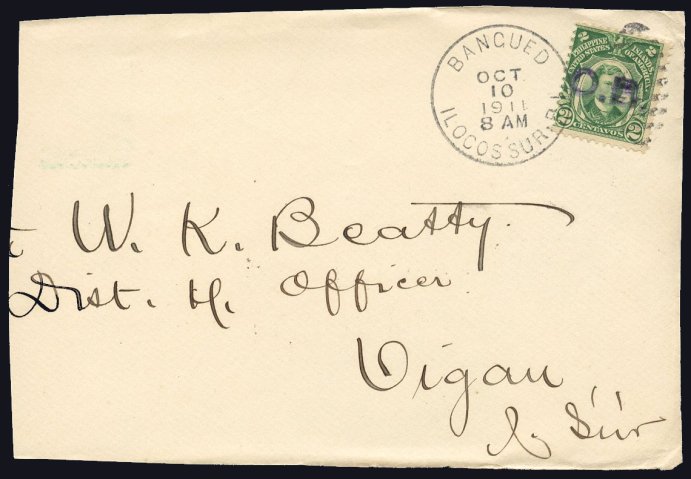 BANGUED
OCT
10
1911
8 AM
ILOCOS SUR.P.I.
2 PHILIPPINE ISLANDS 2
UNITED STATES OF AMERICA
O.B.
2 CENTAVOS 2
W. K. Beatty.
Dist. H. Officer
Vigan
I. Sur